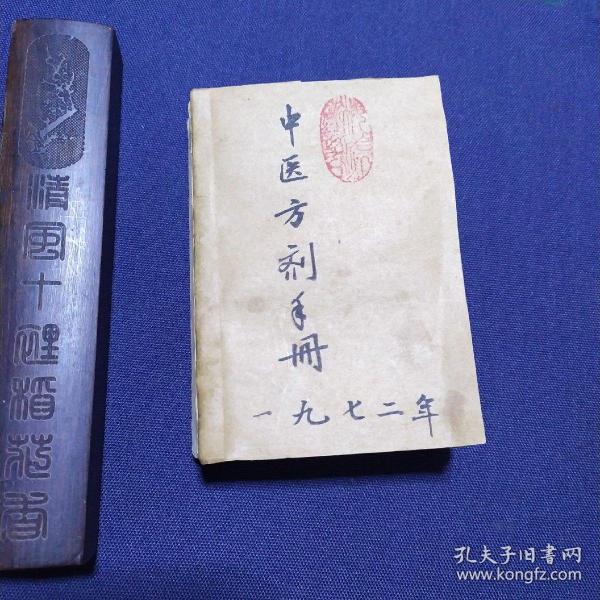 清风十里稻花香
中医方剂手册
一九七二年
孔夫子旧书网
www.kongfz.com